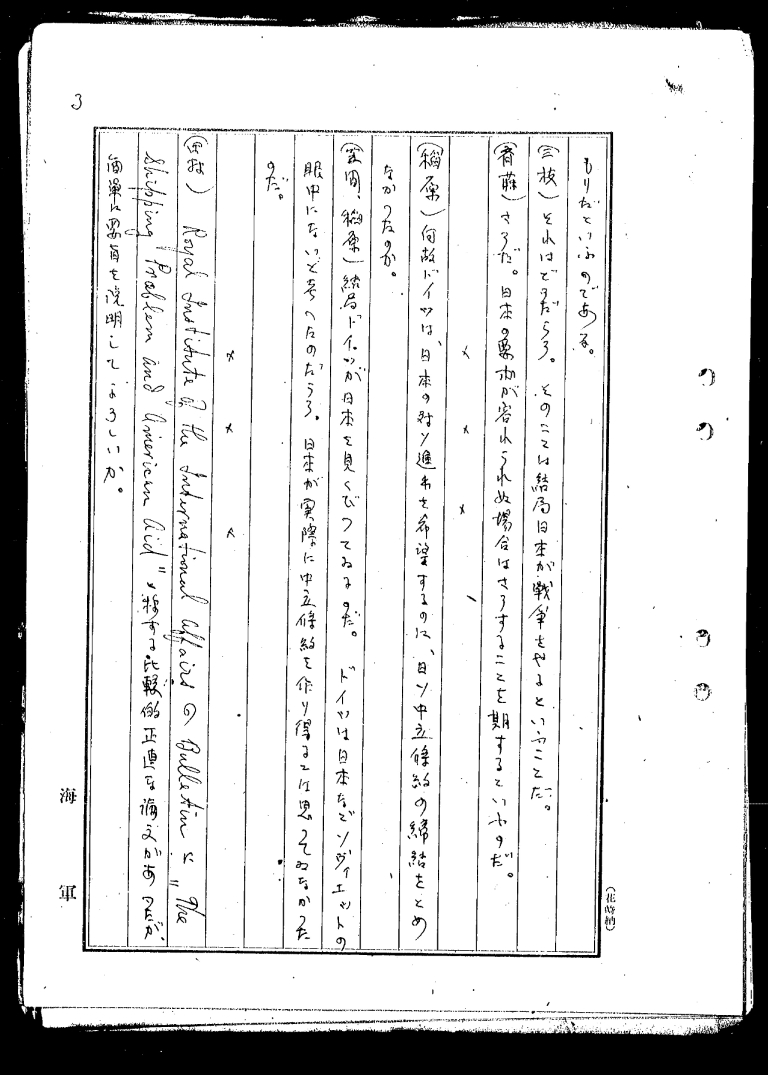 3
もりだといふのである。
(三枝) それはどうだらう。そのことは結局日本が戦争をやるといふことだ。
(斉藤) さうだ。日本の要求が容れられぬ場合はさうすることを期するといふのだ。
× × ×
(稲原) 何故ドイツは、日本の対ソ進出を希望するのに、日ソ中立條約の締結をとめ
なかつたのか。
稲原) 結局ドイツが日本を見くびつてゐるのだ。ドイツは日本などソヴィエットの
眼中にないと考へたのだらう。日本が実際に中立條約を作り得るとは思つてゐなかつた
のだ。
× × ×
Royal Institute of the International Affairs の Bulletin に "The
Shipping Problem and American Aid" と称する比較的正直な論文があつたが、
簡単に要旨を説明してよろしいか。
海軍
(花崎納)